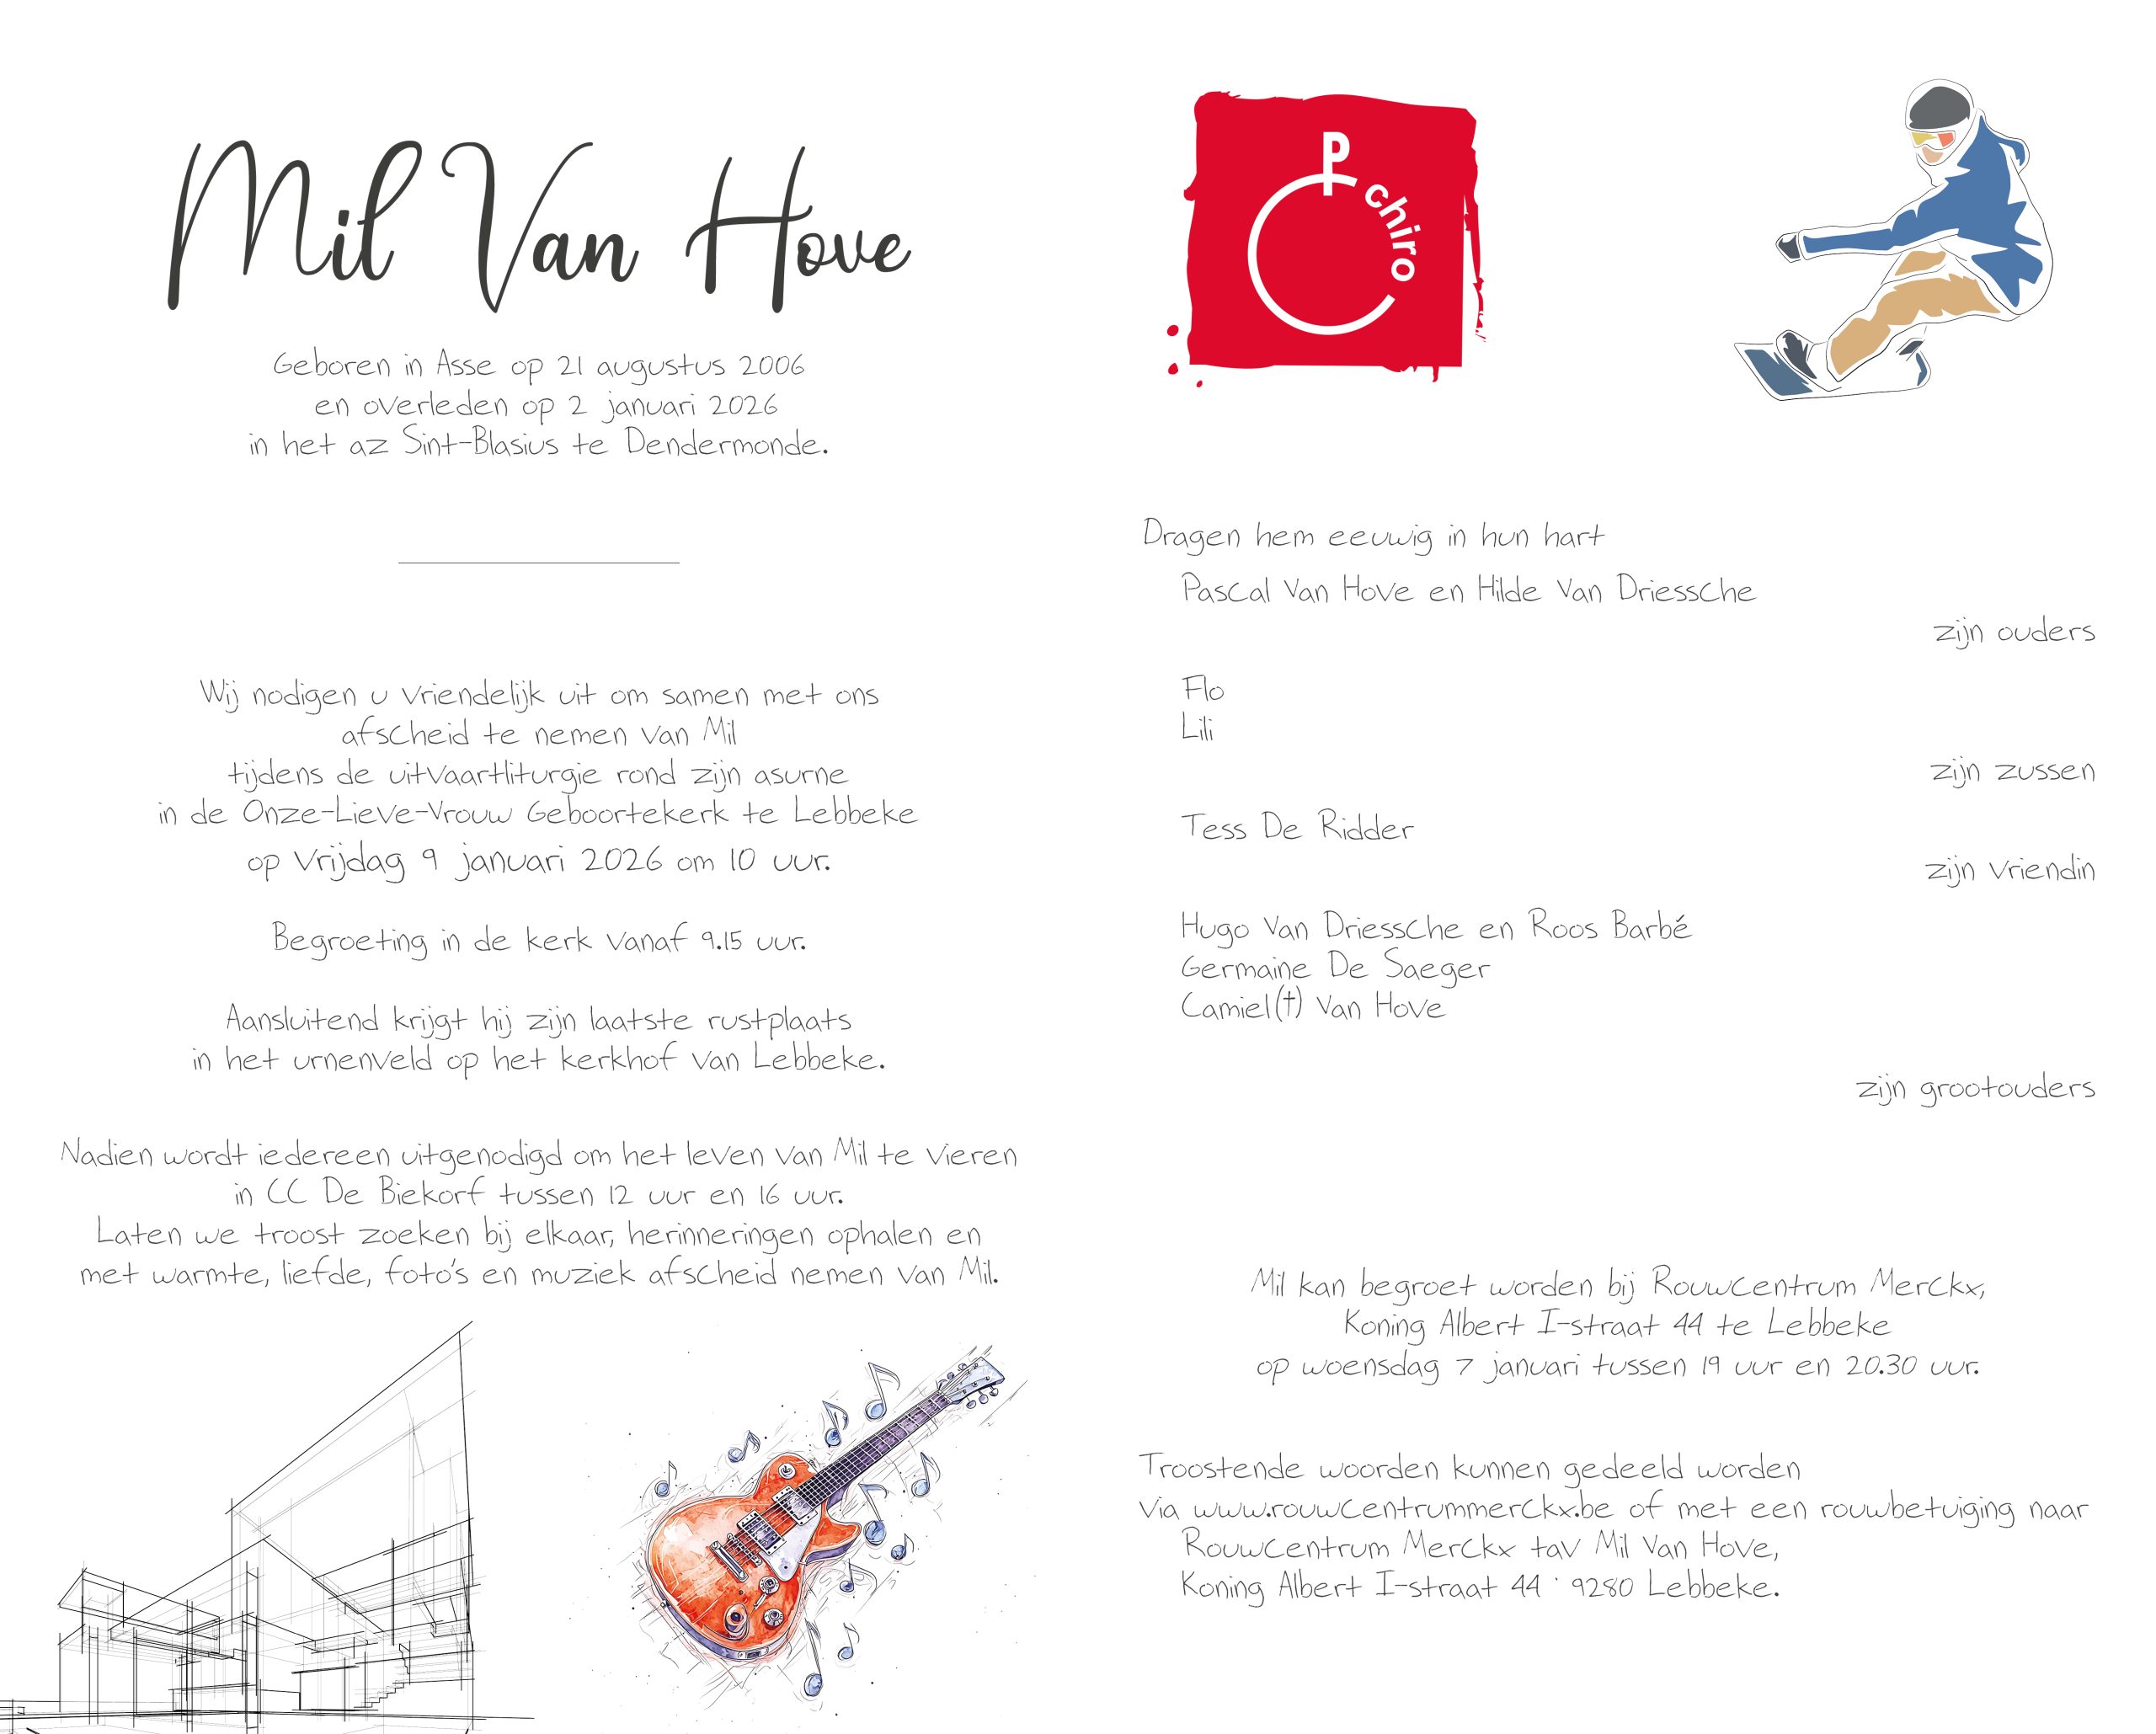 Mil Van Hove
Geboren in Asse op 21 augustus 2006
en overleden op 2 januari 2026
in het az Sint-Blasius te Dendermonde.
Wij nodigen u vriendelijk uit om samen met ons
afscheid te nemen van Mil
tijdens de uitvaartliturgie rond zijn asurne
in de Onze-Lieve-Vrouw Geboortekerk te Lebbeke
op vrijdag 9 januari 2026 om 10 uur.
Begroeting in de kerk vanaf 9.15 uur.
Aansluitend krijgt hij zijn laatste rustplaats
in het urnenveld op het kerkhof van Lebbeke.
Nadien wordt iedereen uitgenodigd om het leven van Mil te vieren
in CC De Biekorf tussen 12 uur en 16 uur.
Laten we troost zoeken bij elkaar, herinneringen ophalen en
met warmte, liefde, foto's en muziek afscheid nemen van Mil.
P chiro
Dragen hem eeuwig in hun hart
Pascal Van Hove en Hilde Van Driessche
zijn ouders
Flo
Lili
zijn zussen
Tess De Ridder
zijn vriendin
Hugo Van Driessche en Roos Barbé
Germaine De Saeger
Camiel(†) Van Hove
zijn grootouders
Mil kan begroet worden bij Rouwcentrum Merckx,
Koning Albert I-straat 44 te Lebbeke
op woensdag 7 januari tussen 19 uur en 20.30 uur.
Troostende woorden kunnen gedeeld worden
via www.rouwcentrummerckx.be of met een rouwbetuiging naar
Rouwcentrum Merckx tav Mil Van Hove,
Koning Albert I-straat 44 · 9280 Lebbeke.